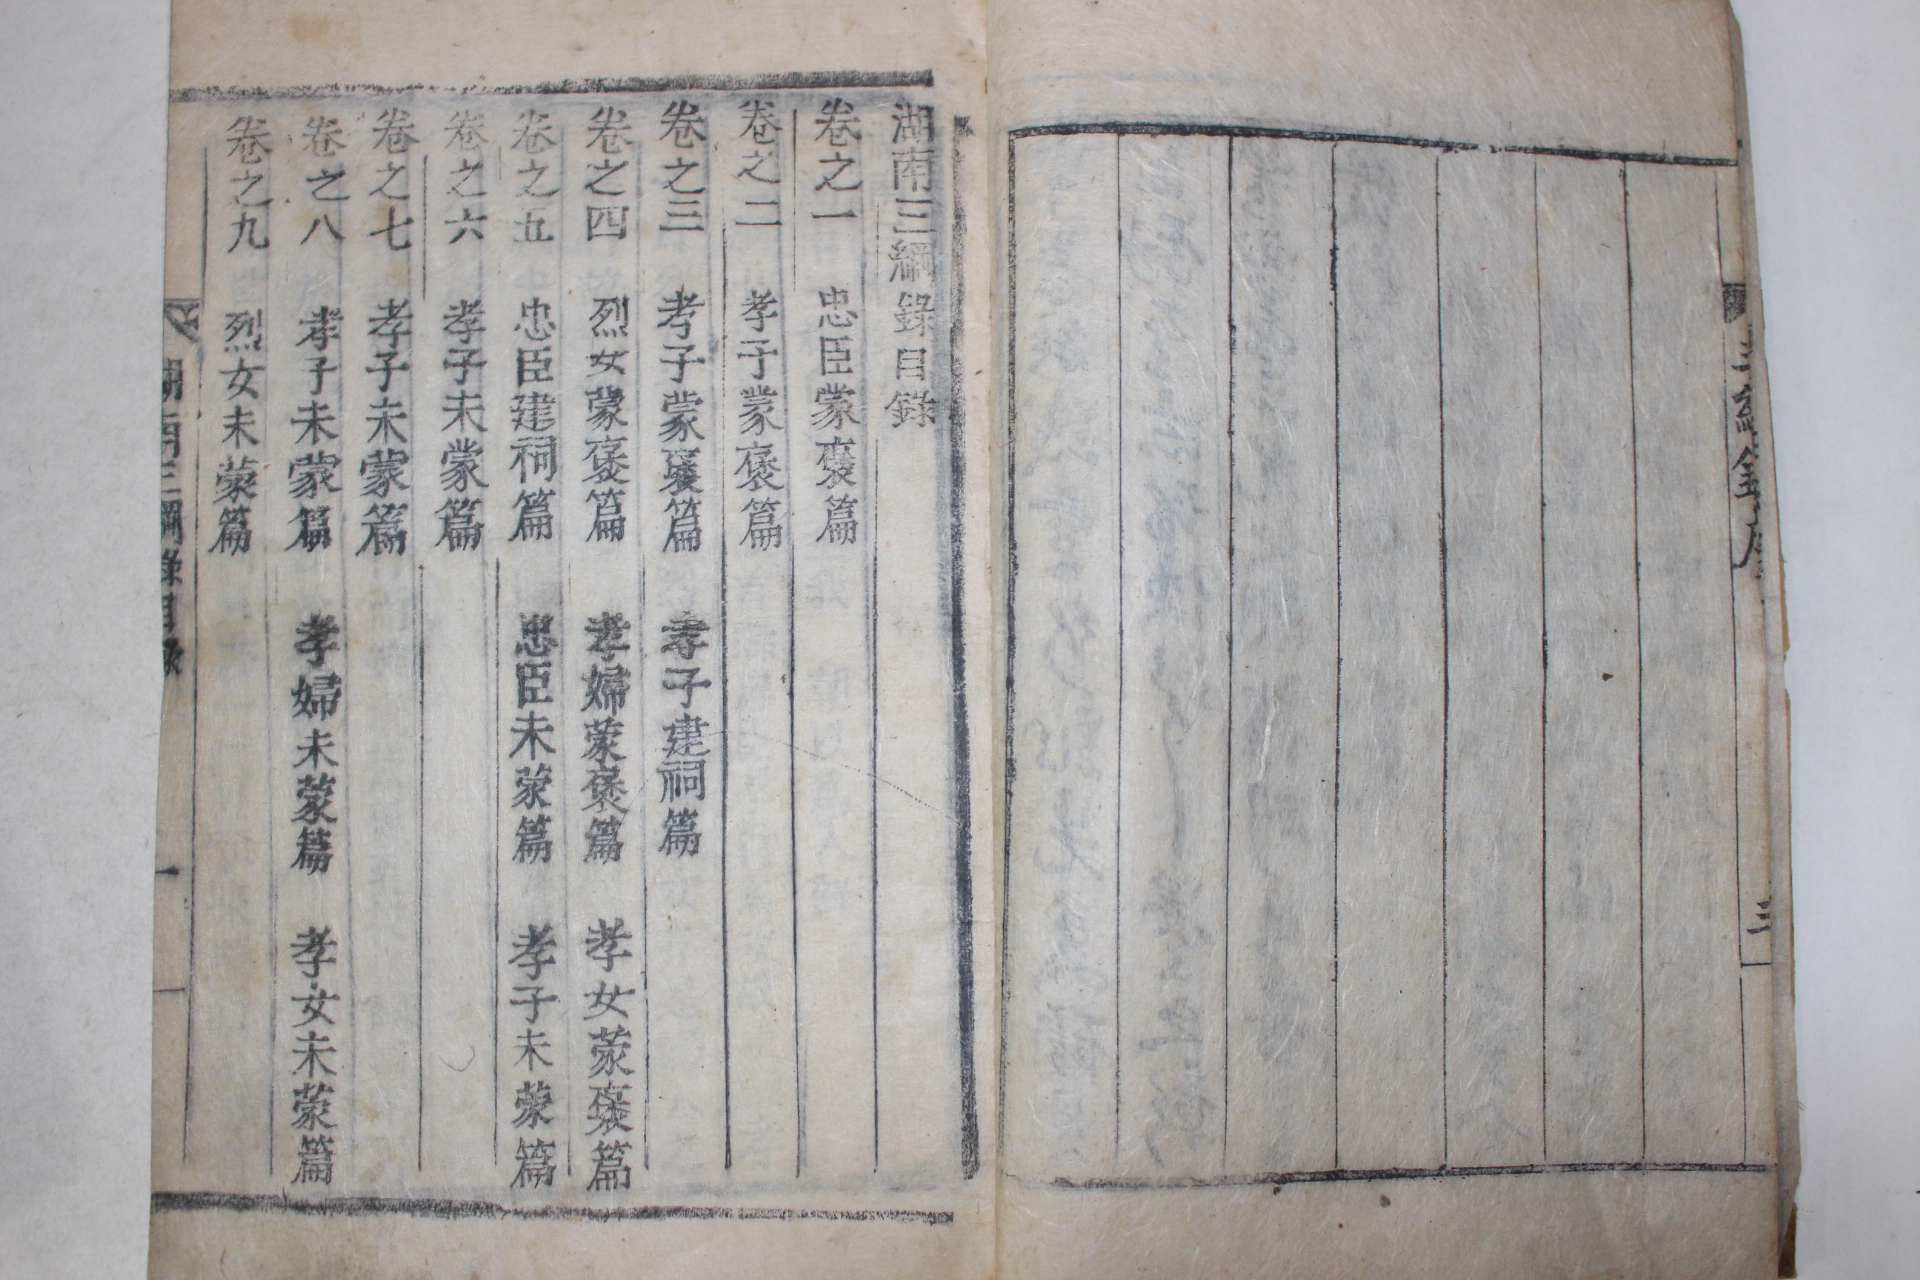 三綱錄序
三
湖南三綱錄目錄
卷之一 忠臣蒙褒篇
卷之二 孝子蒙褒篇
卷之三 孝子蒙褒篇 孝子建祠篇
卷之四 烈女蒙褒篇 孝婦蒙褒篇 孝女蒙褒篇
卷之五 忠臣建祠篇 忠臣未蒙篇 孝子未蒙篇
卷之六 孝子未蒙篇
卷之七 孝子未蒙篇
卷之八 孝子未蒙篇 孝婦未蒙篇 孝女未蒙篇
卷之九 烈女未蒙篇
湖南三綱錄目錄
一